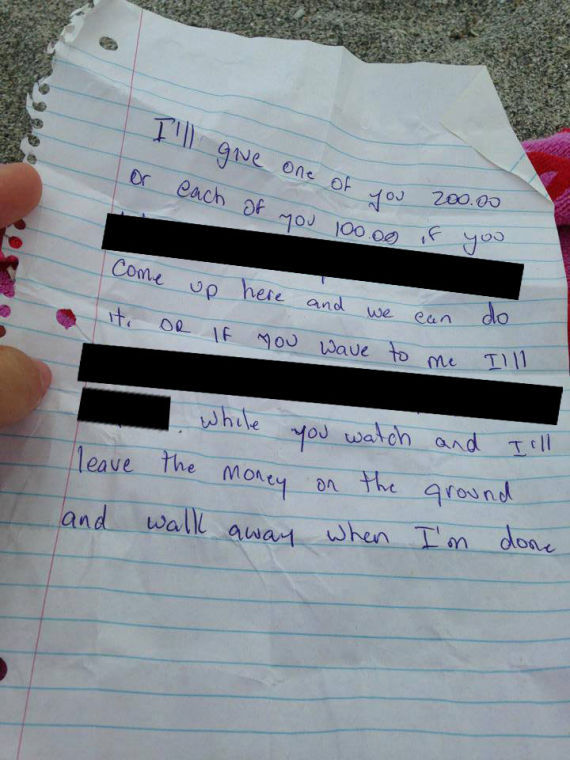 I'll give one of you 200.00
or each of you 100.00 if you
come up here and we can do
it. OR IF you wave to me I'll
. while you watch and I'll
leave the money on the ground
and walk away when I'm done